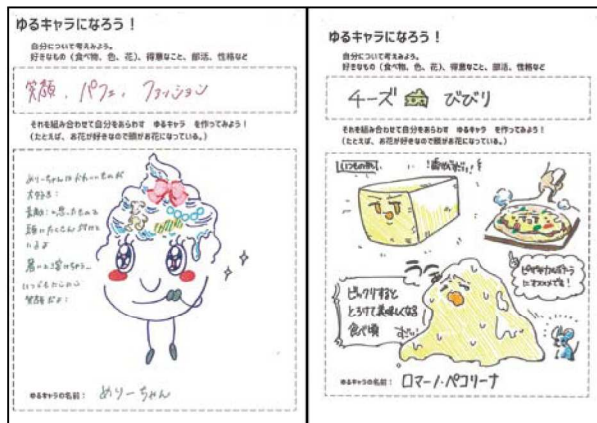 ゆるキャラになろう！
自分について考えみよう。
好きなもの（食べ物、色、花）、得意なこと、部活、性格など
笑顔、パフェ、ファッション
それを組み合わせて自分をあらわす　ゆるキャラ　を作ってみよう！
（たとえば、お花が好きなので頭がお花になっている。）
めりーちゃんはかわいいものが
大好き！
素敵！と思ったものを
頭にたくさん付けて
いるよ
暑いと溶けちゃう…
いつもたのしい
笑顔だよ！
ゆるキャラの名前：　めりーちゃん
ゆるキャラになろう！
自分について考えみよう。
好きなもの（食べ物、色、花）、得意なこと、部活、性格など
チーズ　びびり
それを組み合わせて自分をあらわす　ゆるキャラ　を作ってみよう！
（たとえば、お花が好きなので頭がお花になっている。）
いつもの姿
ピザやカルボナーラ
にオススメです！
ビックリすると
とろけて美味しくなる
食べ頃
ゆるキャラの名前：　ロマーノ・ペコリーナ